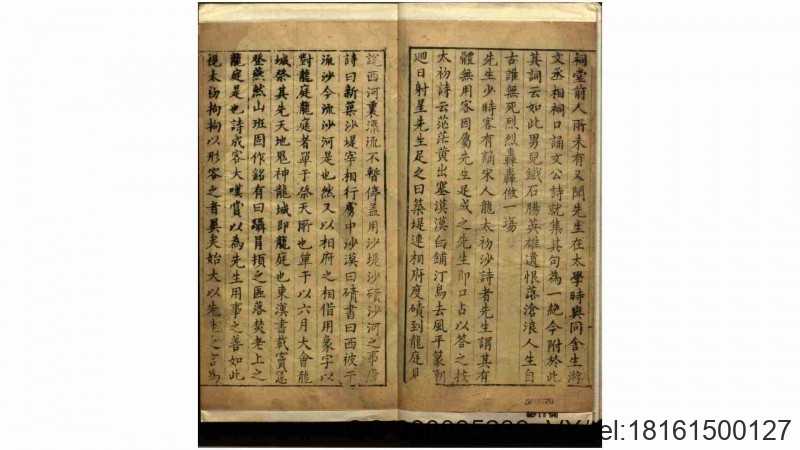 祠壹前人所未有又聞先生在太學時與同舍生游
文丞相祠口誦文公詩就集其句為一絶今附於此
其詞云如此男兒鐵石腸英雄遺恨落滄浪人生自
古誰無死烈烈轟轟做一塲
先生少時客有誦宋人龍太初沙詩者先生謂其有
體無用客因屬先生足成之先生即口占以答之按
太初詩云茫茫黄出塞漠漠白鋪汀鳥去風平篆潮
廻日射星先生足之曰築堤連相府度磧到龍庭
西河裏流不暫停盖用沙堤沙磧沙河之事
詩曰新築沙堤宰相行虜中沙漠曰磧書曰西被于
流沙今流沙河是也然又以相府之相借用象字以
對龍庭龍庭者單于祭天所也單于以六月大會龍
城祭其先天地鬼神龍城即龍庭也東漢書載竇憲
登燕然山班固作銘有曰躡冒頓之區落焚老上之
龍庭是也詩成客大嘆賞以為先生用事之善如此
視太初拘拘以形容之者異矣始大以先生之言為
tel:18161500127